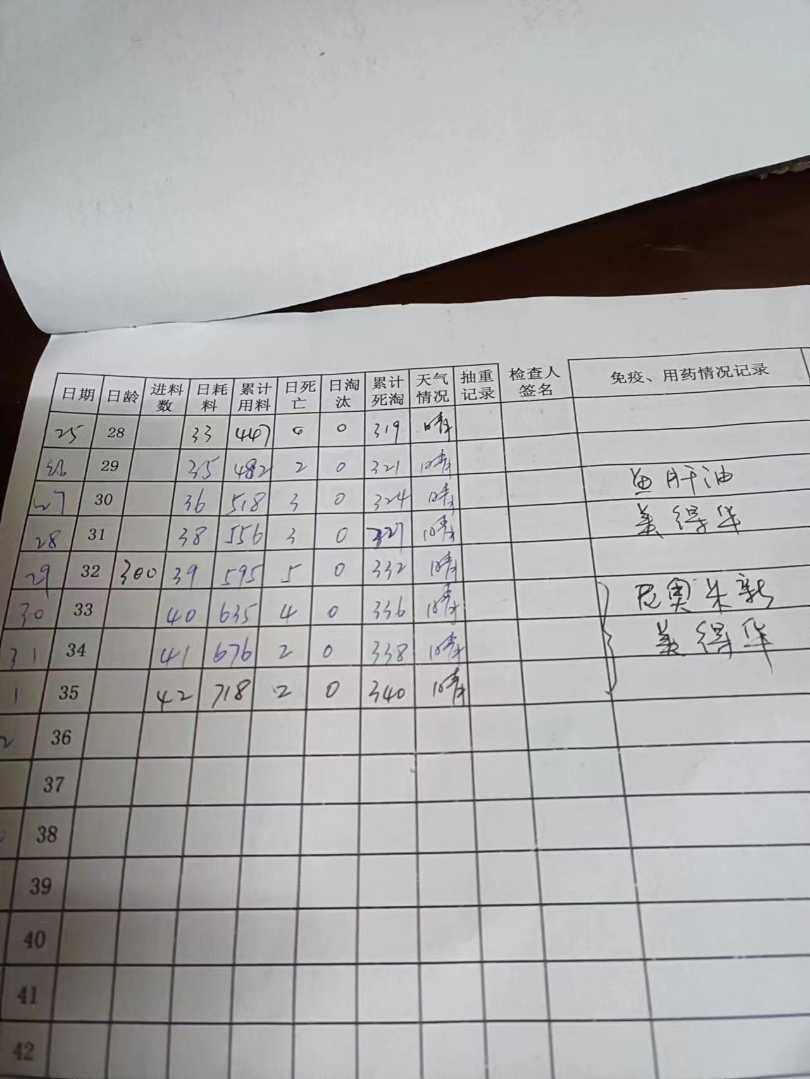 日期 日龄 进料数 日耗料 累计用料 日死亡 日淘汰 累计死淘 天气情况 抽重记录 检查人签名 免疫、用药情况记录
25 28 33 447 0 0 319 晴
29 35 482 2 0 321 晴
27 30 36 518 3 0 324 晴 鱼肝油
28 31 38 556 3 0 327 晴 美得华
29 32 300 39 595 5 0 332 晴
30 33 40 635 4 0 336 晴
31 34 41 676 2 0 338 晴 美得华
1 35 42 718 2 0 340 晴
2 36
37
38
39
40
41
42